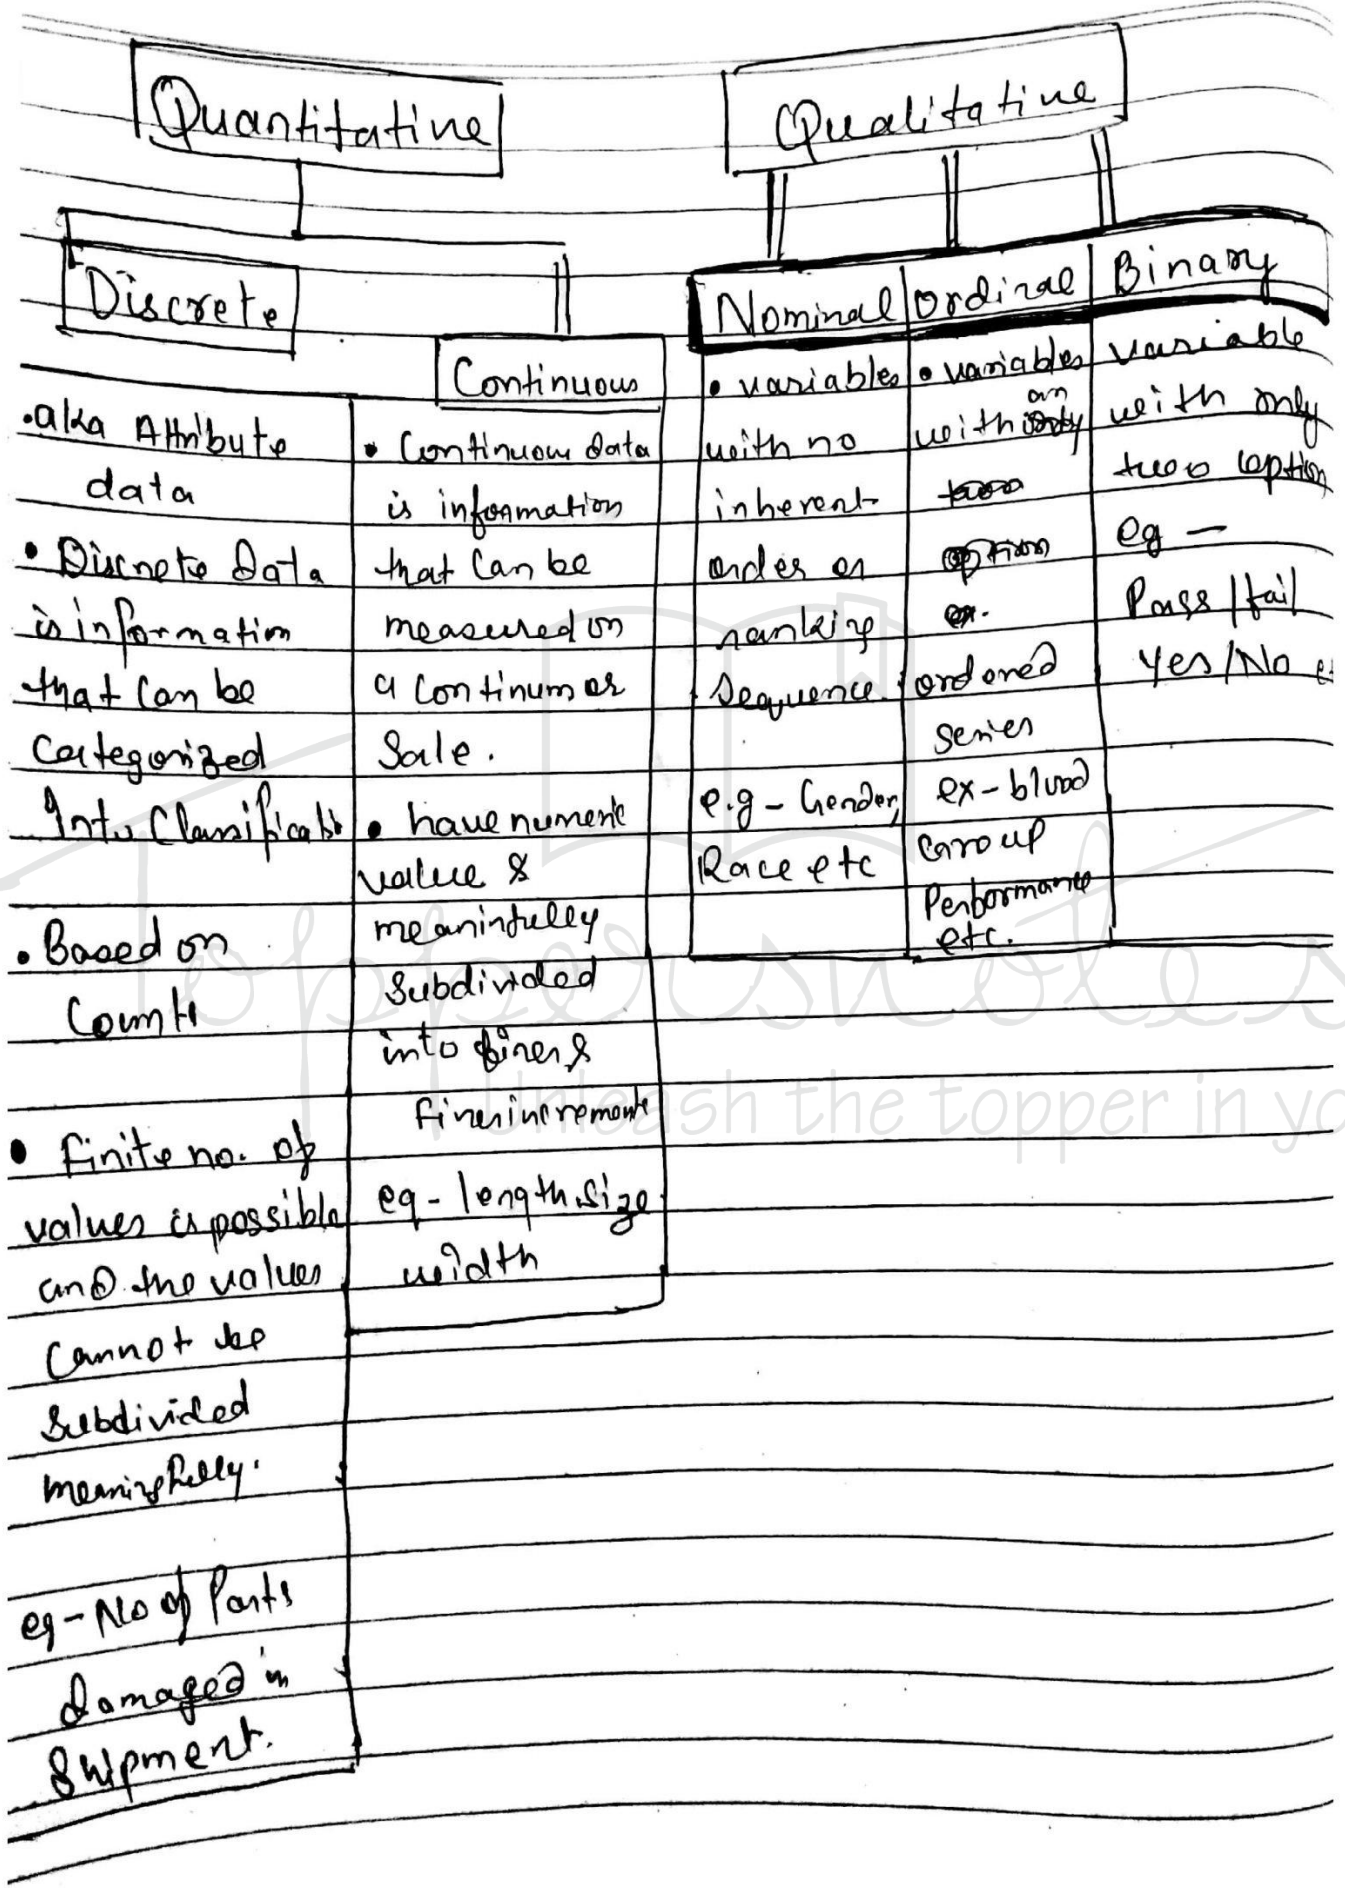 Quantitative
Qualitative
Discrete
Continuous
Nominal
ordinal
Binary
•aka Attribute
data
• Discrete Data
is information
that Can be
Categorized
Into
• Based on
• Finite no. of
values is possible
and the values
Cannot be
Subdivided
meaningfully.
eg-No of Parts
damaged in
Shipment.
• Continuous data
is information
that Can be
measured on
a continum or
Sale.
• have numeric
value &
meaninfully
Subdivided
into finer &
finer increments
eg- length, size
width
• variables
with no
inherent
order or
ranking
Sequence.
e.g - Gender,
Race etc
• variables
with an
ordered
series
ex-blood
Group
Performance
etc.
variable
with only
two option
eg -
Pass/fail
Yes/No
Toppersnotes
Unleash the topper in yo